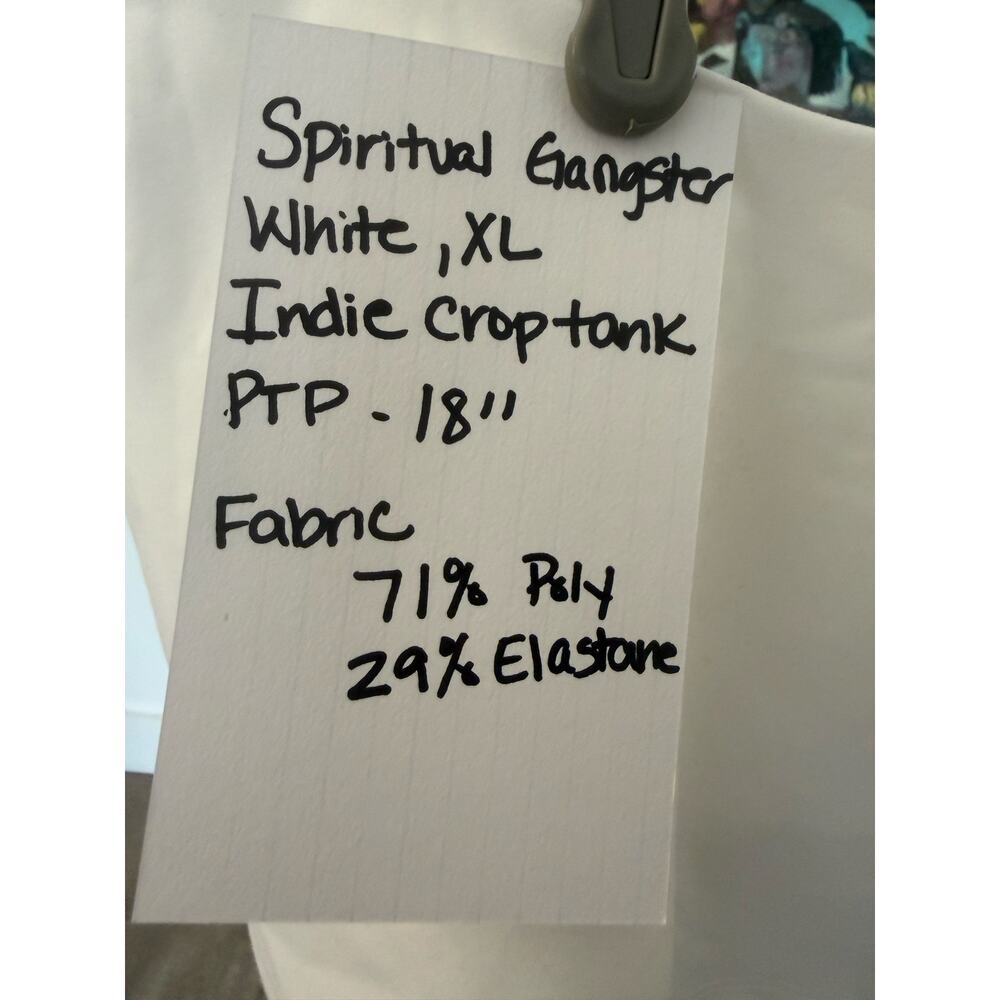 Spiritual Gangster
White, XL
Indie Crop tank
PTP - 18"
Fabric
71% Poly
29% Elastane